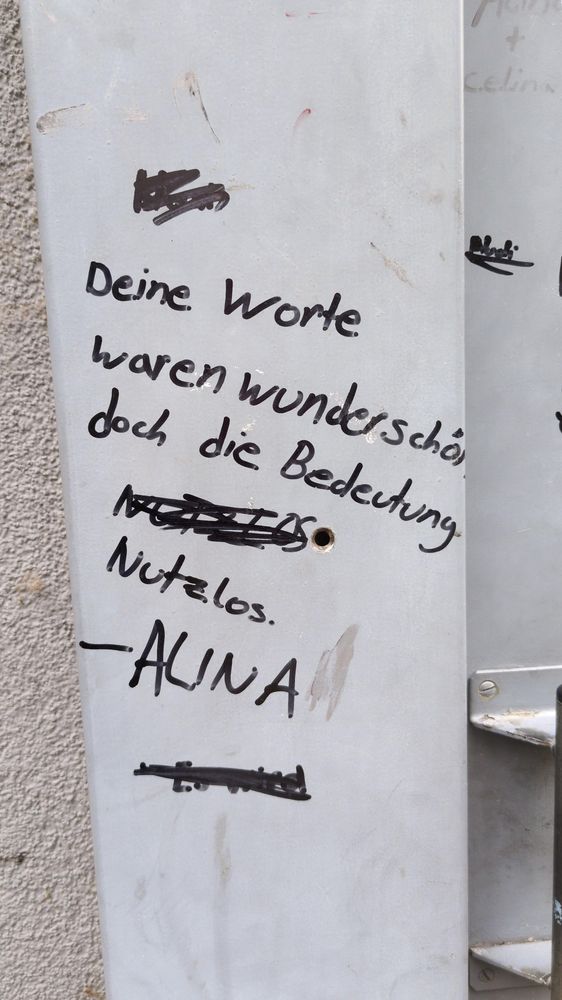 Deine Worte
waren wunderschön
doch die Bedeutung
Nutzlos.
-ALINA
Alina
+
celina